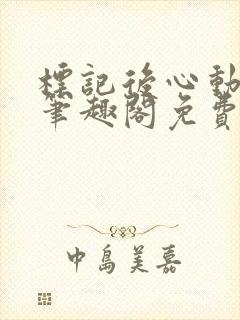 標記後心動
筆趣閣免費
中島美嘉